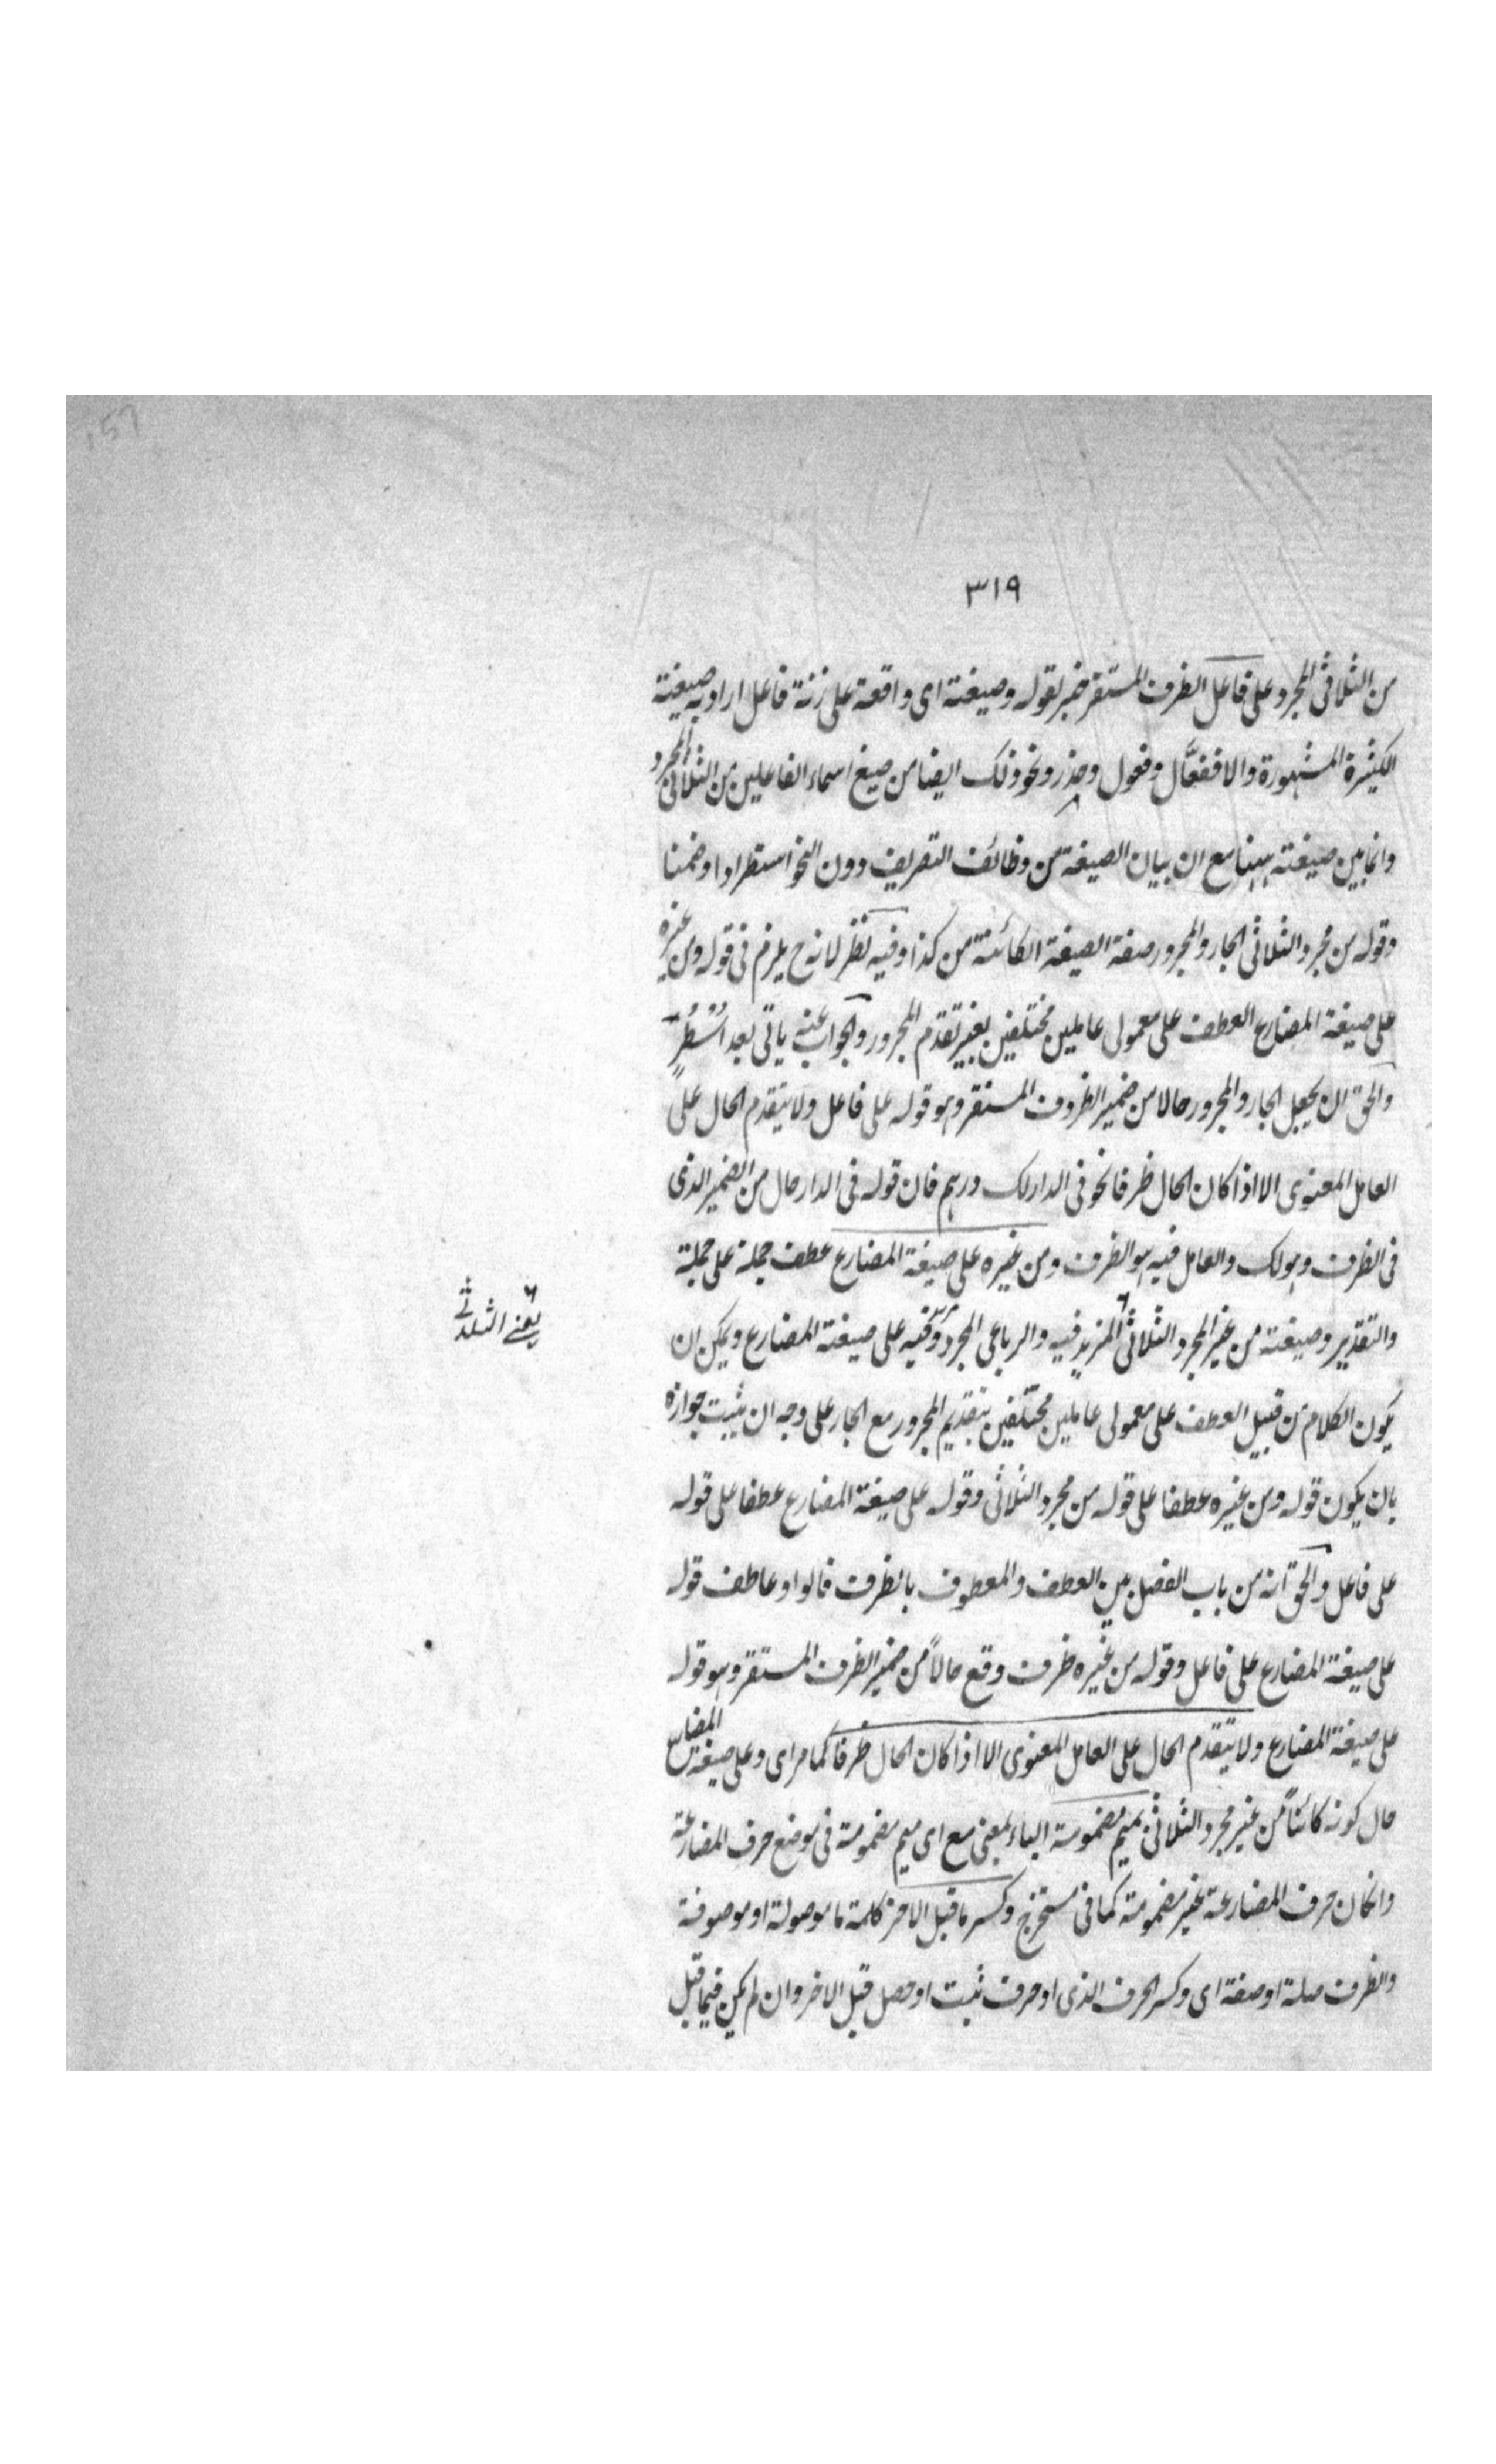 ٣١٩
من الثلاثى المجرد على فاعل الظرف المستقر خبر لقوله وصيغته اى واقعة على زنة فاعل اراد به صيغة
الكثيرة المشهورة والا ففعَّال وفعول وحذر ونحو ذلك ايضا من صيغ اسماء الفاعلين من الثلاثى المجرد
وانما بين صيغته ههنا مع ان بيان الصيغة من وظائف التصريف دون النحو استطرادا وضمنا
وقوله من مجرد الثلاثى الجار والمجرور صفة الصيغة الكائنة من كذا وفيه نظر لانه ح يلزم فى قوله ومن غيره
على صيغة المضارع العطف على معمولى عاملين مختلفين بغير تقدم المجرور والجواب عنه ياتى بعد اَسْطُرٍ
والحق ان يجعل الجار والمجرور حالا من ضمير الظروف المستقر وهو قوله على فاعل ولا يتقدم الحال على
العامل المعنوى الا اذا كان الحال ظرفا نحو فى الدار لك درهم فان قوله فى الدار حال من الضمير الذى
فى الظرف وهو لك والعامل فيه هو الظرف ومن غيره على صيغة المضارع عطف جملة على جملة
والتقدير وصيغته من غير المجرد الثلاثى المزيد فيه والرباعى المجرد وفيه على صيغة المضارع ويمكن ان
يعنے الثلاثے
يكون الكلام من قبيل العطف على معمولى عاملين مختلفين بتقديم المجرور مع الجار على وجه ان يثبت جوازه
بان يكون قوله ومن غيره عطفا على قوله من مجرد الثلاثى وقوله على صيغة المضارع عطفا على قوله
على فاعل والحق انه من باب الفصل بين العطف والمعطوف بالظرف فالواو عاطف قوله
على صيغة المضارع على فاعل وقوله من غيره ظرف وقع حالاً من ضمير الظرف المستقر وهو قوله
على صيغة المضارع ولا يتقدم الحال على العامل المعنوى الا اذا كان الحال ظرفا كما مر اى وعلى صيغة المضارع
حال كونه كائناً من غير مجرد الثلاثى بميم مضمومة الباء بمعنى مع اى ميم مضمومة فى موضع حرف المضارعة
وانكان حرف المضارعة غير مضمومة كما فى مستخرج وكسر ما قبل الاخر كلمة ما موصولة او موصوفة
والظرف صلة او صفة اى وكسر الحرف الذى او حرف ثبت او حصل قبل الاخر وان لم يكن فيما قبل